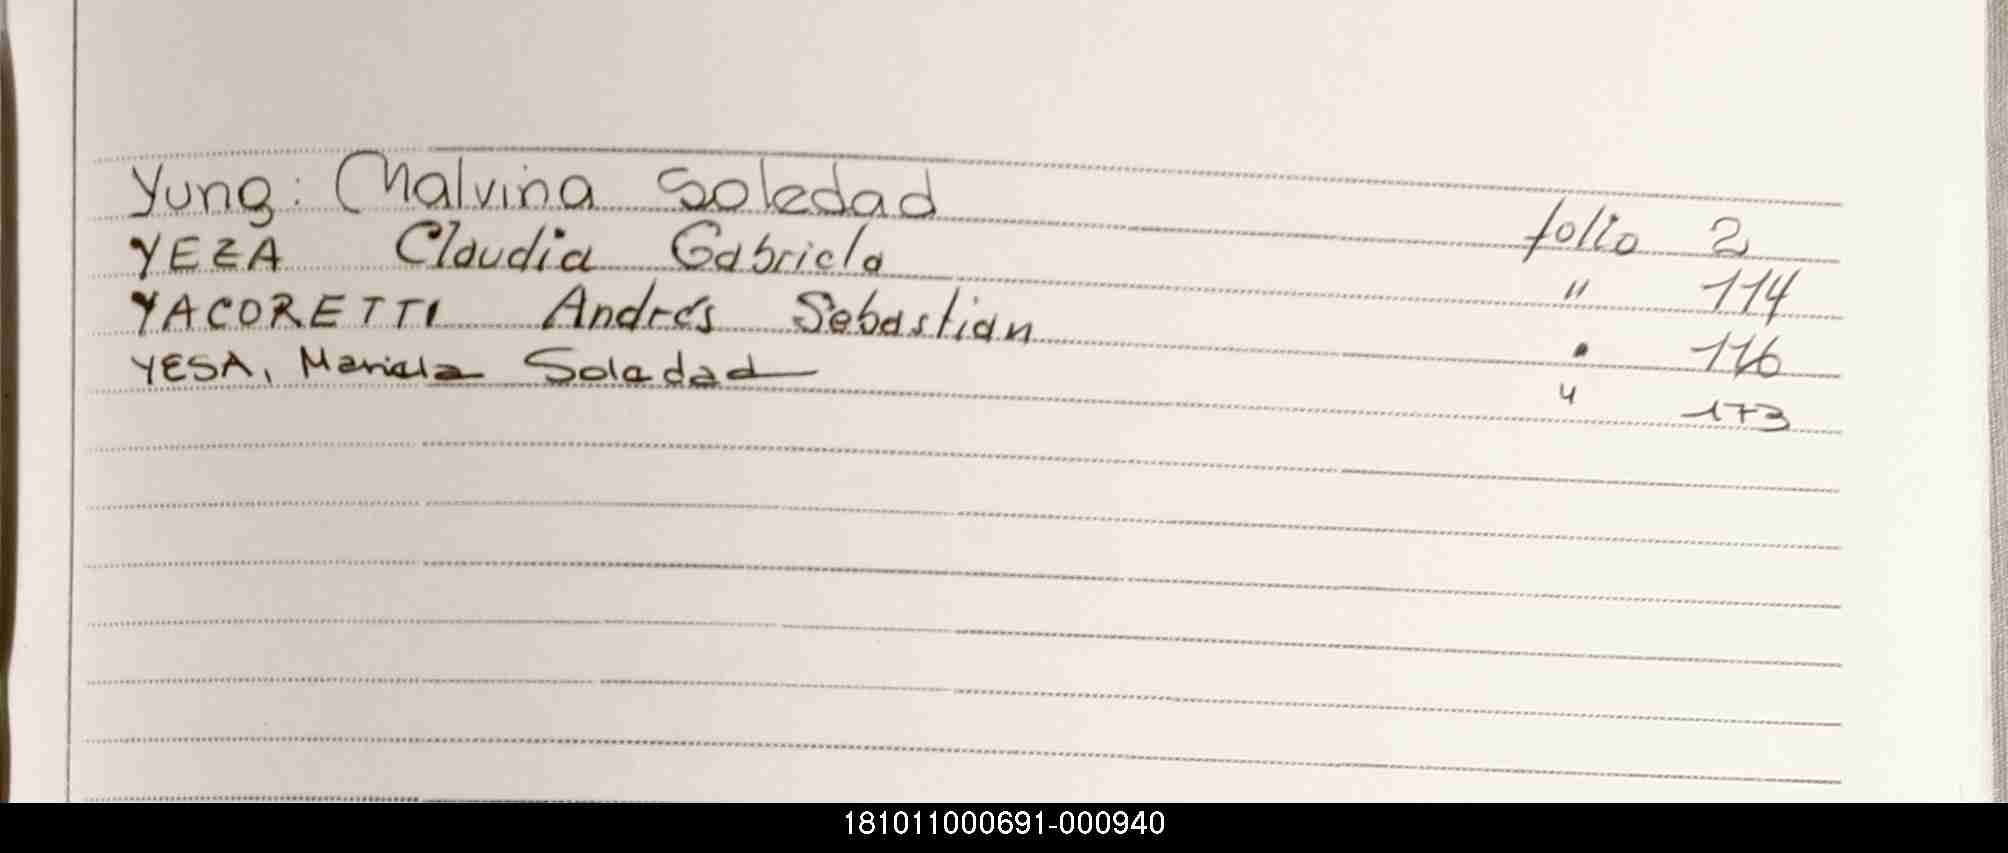 Yung: Malvina Soledad folio 2
YEZA Claudia Gabriela " 114
YACORETTI Andrés Sebastian " 116
YESA, Mariela Soledad " 173
181011000691-000940